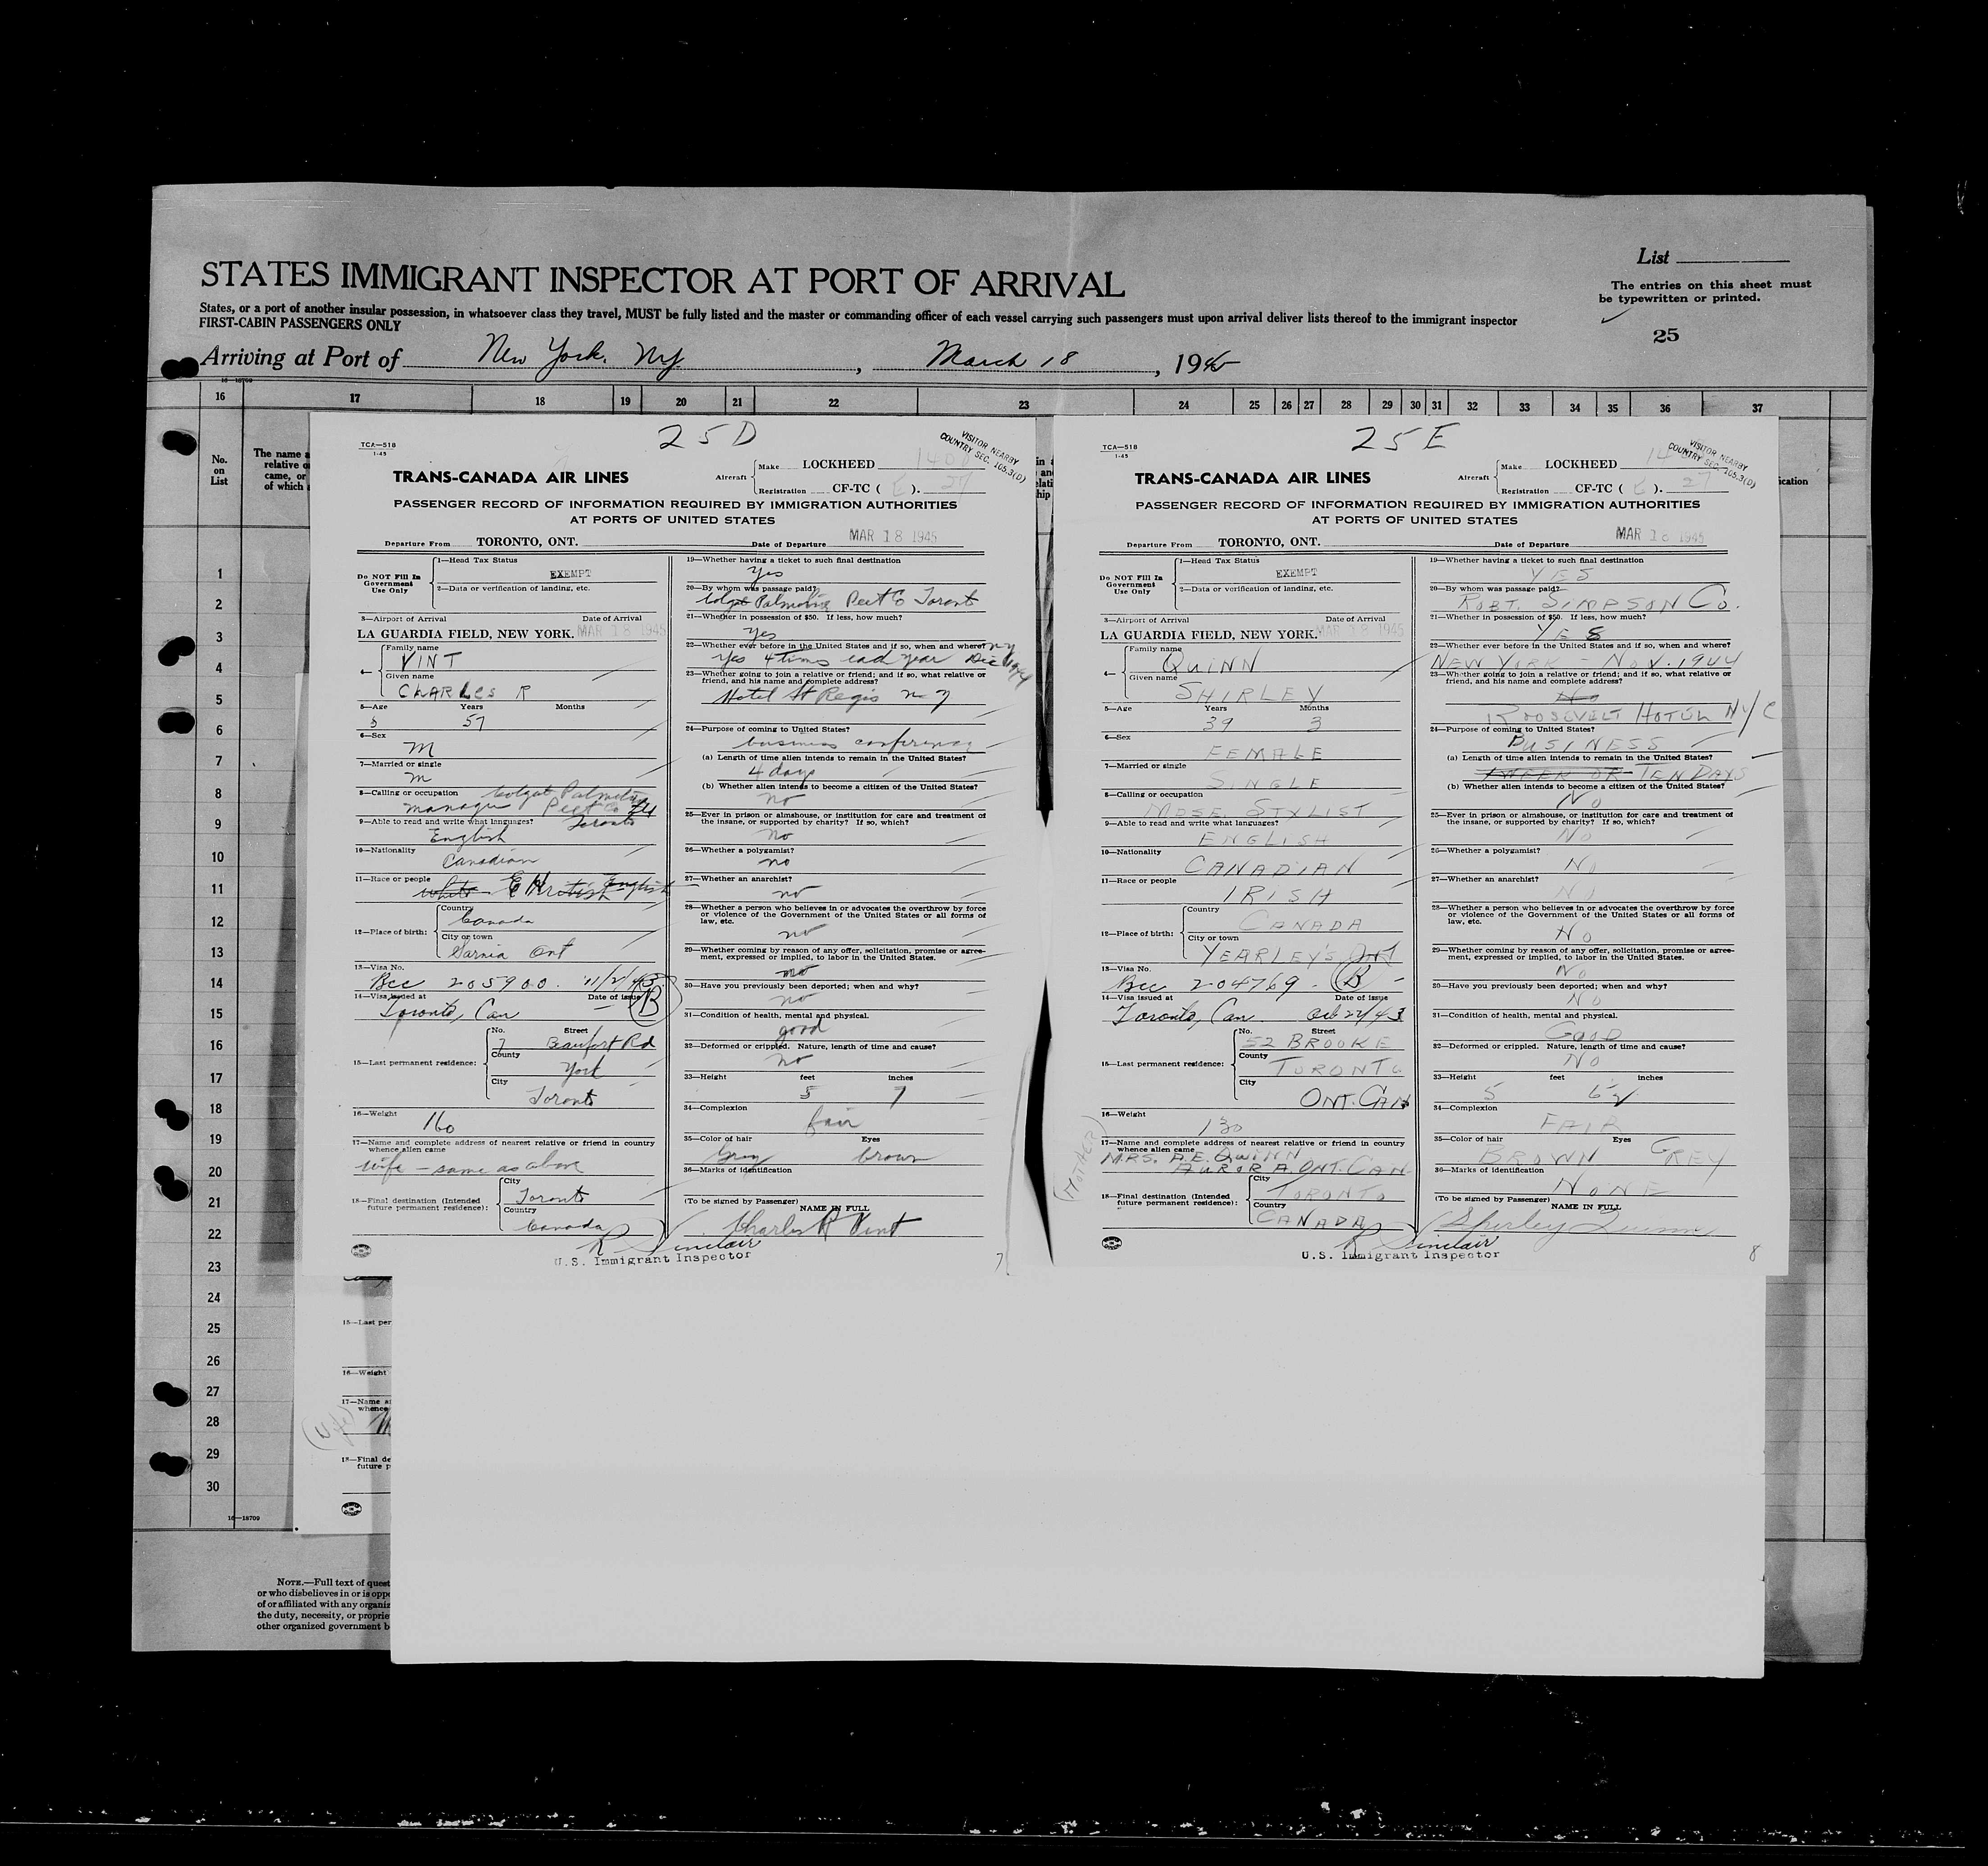 STATES IMMIGRANT INSPECTOR AT PORT OF ARRIVAL
States, or a port of another insular possession, in whatsoever class they travel, MUST be fully listed and the master or commanding officer of each vessel carrying such passengers must upon arrival deliver lists thereof to the immigrant inspector
FIRST-CABIN PASSENGERS ONLY
List
The entries on this sheet must
be typewritten or printed.
25
Arriving at Port of New York, NY, March 18, 1945
16 17 18 19 20 21 22 23 24 25 26 27 28 29 30 31 32 33 34 35 36 37
No.
on
List
The name a
relative o
came, or
of which a
1
2
3
4
5
6
7
8
9
10
11
12
13
14
15
16
17
18
19
20
21
22
23
24
25
26
27
28
29
30
16—18709
25D
TCA—518
1-45
VISITOR NEARBY
COUNTRY SEC. 165.3(D)
TRANS-CANADA AIR LINES
Aircraft
Make LOCKHEED
Registration CF-TC ( ).
PASSENGER RECORD OF INFORMATION REQUIRED BY IMMIGRATION AUTHORITIES
AT PORTS OF UNITED STATES
Departure From TORONTO, ONT. Date of Departure MAR 18 1945
Do NOT Fill In
Government
Use Only
1—Head Tax Status
EXEMPT
2—Data or verification of landing, etc.
3—Airport of Arrival Date of Arrival
LA GUARDIA FIELD, NEW YORK. MAR 18 1945
4—
Family name
VINT
Given name
CHARLES R
5—Age Years Months
57
6—Sex
M
7—Married or single
m
8—Calling or occupation Colgate Palmolive
manager Peet Co
Toronto
9—Able to read and write what languages?
English
10—Nationality
Canadian
11—Race or people
white English
12—Place of birth:
Country
Canada
City or town
Sarnia Ont
13—Visa No.
Bcc 205900. 11/2/43
14—Visa issued at Date of issue
Toronto, Can (B)
15—Last permanent residence:
No. Street
7 Beaufort Rd
County
York
City
Toronto
16—Weight
160
17—Name and complete address of nearest relative or friend in country
whence alien came
wife — same as above
18—Final destination (Intended
future permanent residence):
City
Toronto
Country
Canada
19—Whether having a ticket to such final destination
Yes
20—By whom was passage paid?
Colgate Palmolive Peet Co Toronto
21—Whether in possession of $50. If less, how much?
Yes
22—Whether ever before in the United States and if so, when and where?
Yes 4 times each year Dec 1944 NY
23—Whether going to join a relative or friend; and if so, what relative or
friend, and his name and complete address?
Hotel St Regis N Y
24—Purpose of coming to United States?
business conference
(a) Length of time alien intends to remain in the United States?
4 days
(b) Whether alien intends to become a citizen of the United States?
no
25—Ever in prison or almshouse, or institution for care and treatment of
the insane, or supported by charity? If so, which?
no
26—Whether a polygamist?
no
27—Whether an anarchist?
no
28—Whether a person who believes in or advocates the overthrow by force
or violence of the Government of the United States or all forms of
law, etc.
no
29—Whether coming by reason of any offer, solicitation, promise or agree-
ment, expressed or implied, to labor in the United States.
no
30—Have you previously been deported; when and why?
no
31—Condition of health, mental and physical.
good
32—Deformed or crippled. Nature, length of time and cause?
no
33—Height feet inches
5 7
34—Complexion
fair
35—Color of hair Eyes
Gray brown
36—Marks of identification
(To be signed by Passenger)
NAME IN FULL
Charles R Vint
R Sinclair
U.S. Immigrant Inspector
7
25E
TCA—518
1-45
VISITOR NEARBY
COUNTRY SEC. 165.3(D)
TRANS-CANADA AIR LINES
Aircraft
Make LOCKHEED
Registration CF-TC ( ). 27
PASSENGER RECORD OF INFORMATION REQUIRED BY IMMIGRATION AUTHORITIES
AT PORTS OF UNITED STATES
Departure From TORONTO, ONT. Date of Departure MAR 18 1945
Do NOT Fill In
Government
Use Only
1—Head Tax Status
EXEMPT
2—Data or verification of landing, etc.
3—Airport of Arrival Date of Arrival
LA GUARDIA FIELD, NEW YORK. MAR 18 1945
4—
Family name
QUINN
Given name
SHIRLEY
5—Age Years Months
39 3
6—Sex
FEMALE
7—Married or single
SINGLE
8—Calling or occupation
MDSE. STYLIST
9—Able to read and write what languages?
ENGLISH
10—Nationality
CANADIAN
11—Race or people
IRISH
12—Place of birth:
Country
CANADA
City or town
YEARLEY'S ONT
13—Visa No.
Bcc 204769. (B)
14—Visa issued at Date of issue
Toronto, Can. Oct 22/43
15—Last permanent residence:
No. Street
52 BROOKE
County
TORONTO
City
ONT. CAN
16—Weight
130
17—Name and complete address of nearest relative or friend in country
whence alien came
MRS. A.E. QUINN
AURORA. ONT. CAN
(MOTHER)
18—Final destination (Intended
future permanent residence):
City
TORONTO
Country
CANADA
19—Whether having a ticket to such final destination
YES
20—By whom was passage paid?
ROBT. SIMPSON CO.
21—Whether in possession of $50. If less, how much?
YES
22—Whether ever before in the United States and if so, when and where?
NEW YORK — NOV. 1944
23—Whether going to join a relative or friend; and if so, what relative or
friend, and his name and complete address?
No
ROOSEVELT HOTEL NYC
24—Purpose of coming to United States?
BUSINESS
(a) Length of time alien intends to remain in the United States?
1 WEEK OR TEN DAYS
(b) Whether alien intends to become a citizen of the United States?
NO
25—Ever in prison or almshouse, or institution for care and treatment of
the insane, or supported by charity? If so, which?
NO
26—Whether a polygamist?
NO
27—Whether an anarchist?
NO
28—Whether a person who believes in or advocates the overthrow by force
or violence of the Government of the United States or all forms of
law, etc.
NO
29—Whether coming by reason of any offer, solicitation, promise or agree-
ment, expressed or implied, to labor in the United States.
NO
30—Have you previously been deported; when and why?
NO
31—Condition of health, mental and physical.
GOOD
32—Deformed or crippled. Nature, length of time and cause?
NO
33—Height feet inches
5 6½
34—Complexion
FAIR
35—Color of hair Eyes
BROWN GREY
36—Marks of identification
NONE
(To be signed by Passenger)
NAME IN FULL
Shirley Quinn
R Sinclair
U.S. Immigrant Inspector
8
15—Last per
16—Weight
17—Name a
whence
(Wife)
18—Final de
future p
NOTE.—Full text of quest
or who disbelieves in or is oppo
of or affiliated with any organiz
the duty, necessity, or proprie
other organized government b